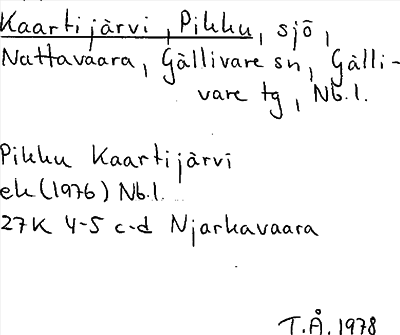 Kaartijärvi, Pikku, sjö,
Nattavaara, Gällivare sn, Gälli-
vare tg, Nb. l.
Pikku Kaartijärvi
ek (1976) Nb. l.
27K 4-5 c-d Njarkavaara
T.Å. 1978